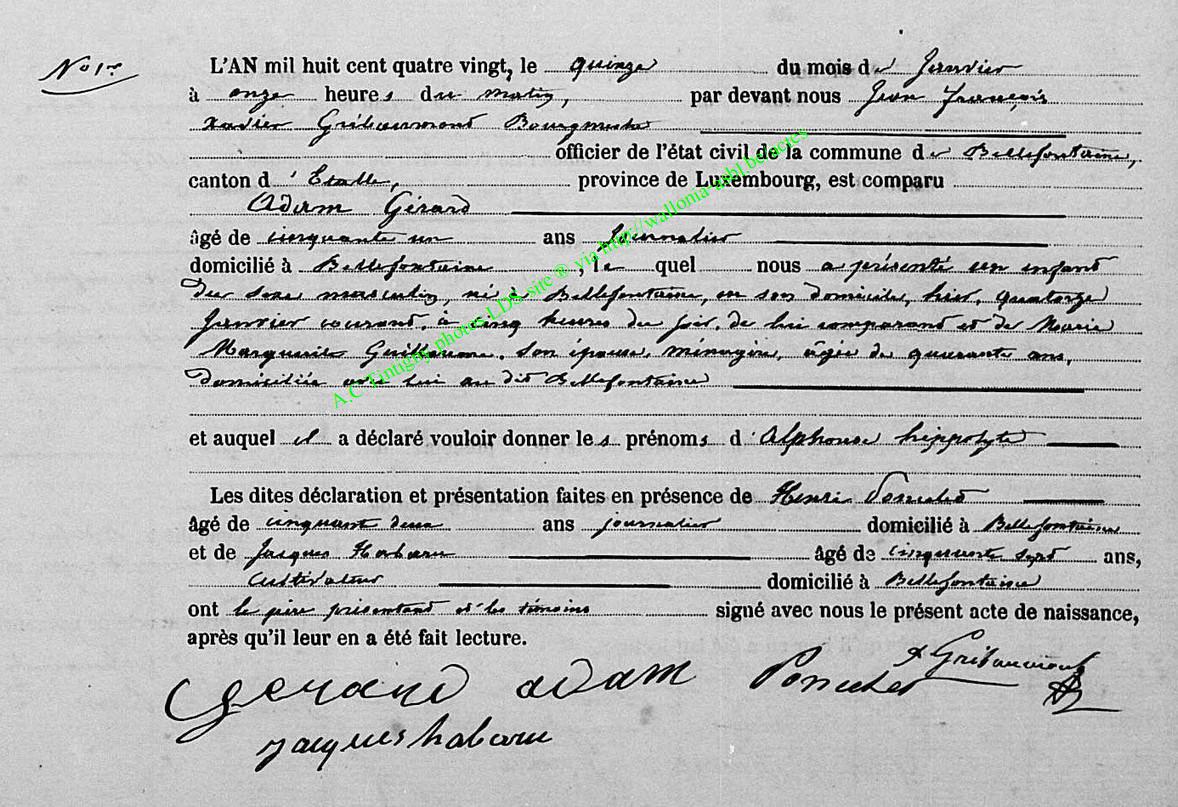 No 1er
L'AN mil huit cent quatre vingt, le quinze du mois de Janvier
à onze heures du matin, par devant nous Jean François
Xavier Gribaumont Bourgmestre
officier de l'état civil de la commune de Bellefontaine,
canton d'Etalle, province de Luxembourg, est comparu
Adam Gérard
âgé de cinquante un ans Journalier
domicilié à Bellefontaine, le quel nous a présenté un enfant
du sexe masculin, né à Bellefontaine, en son domicile, hier, quatorze
Janvier courant, à cinq heures du soir, de lui comparant et de Marie
Marguerite Guillaume, son épouse, ménagère, âgée de quarante ans,
domiciliée avec lui au dit Bellefontaine
et auquel il a déclaré vouloir donner les prénoms d'Alphonse hippolyte
Les dites déclaration et présentation faites en présence de Henri Ponselet
âgé de cinquant deux ans journalier domicilié à Bellefontaine
et de Jacques Habaru âgé de cinquante sept ans,
Cultivateur domicilié à Bellefontaine
ont le père présentant et les témoins signé avec nous le présent acte de naissance,
après qu'il leur en a été fait lecture.
X Gribaumont
Gerard adam Poncelet
jacques habaru
A.C Tintigny photos LDS site ® via http://wallonia-asbl.be/actes